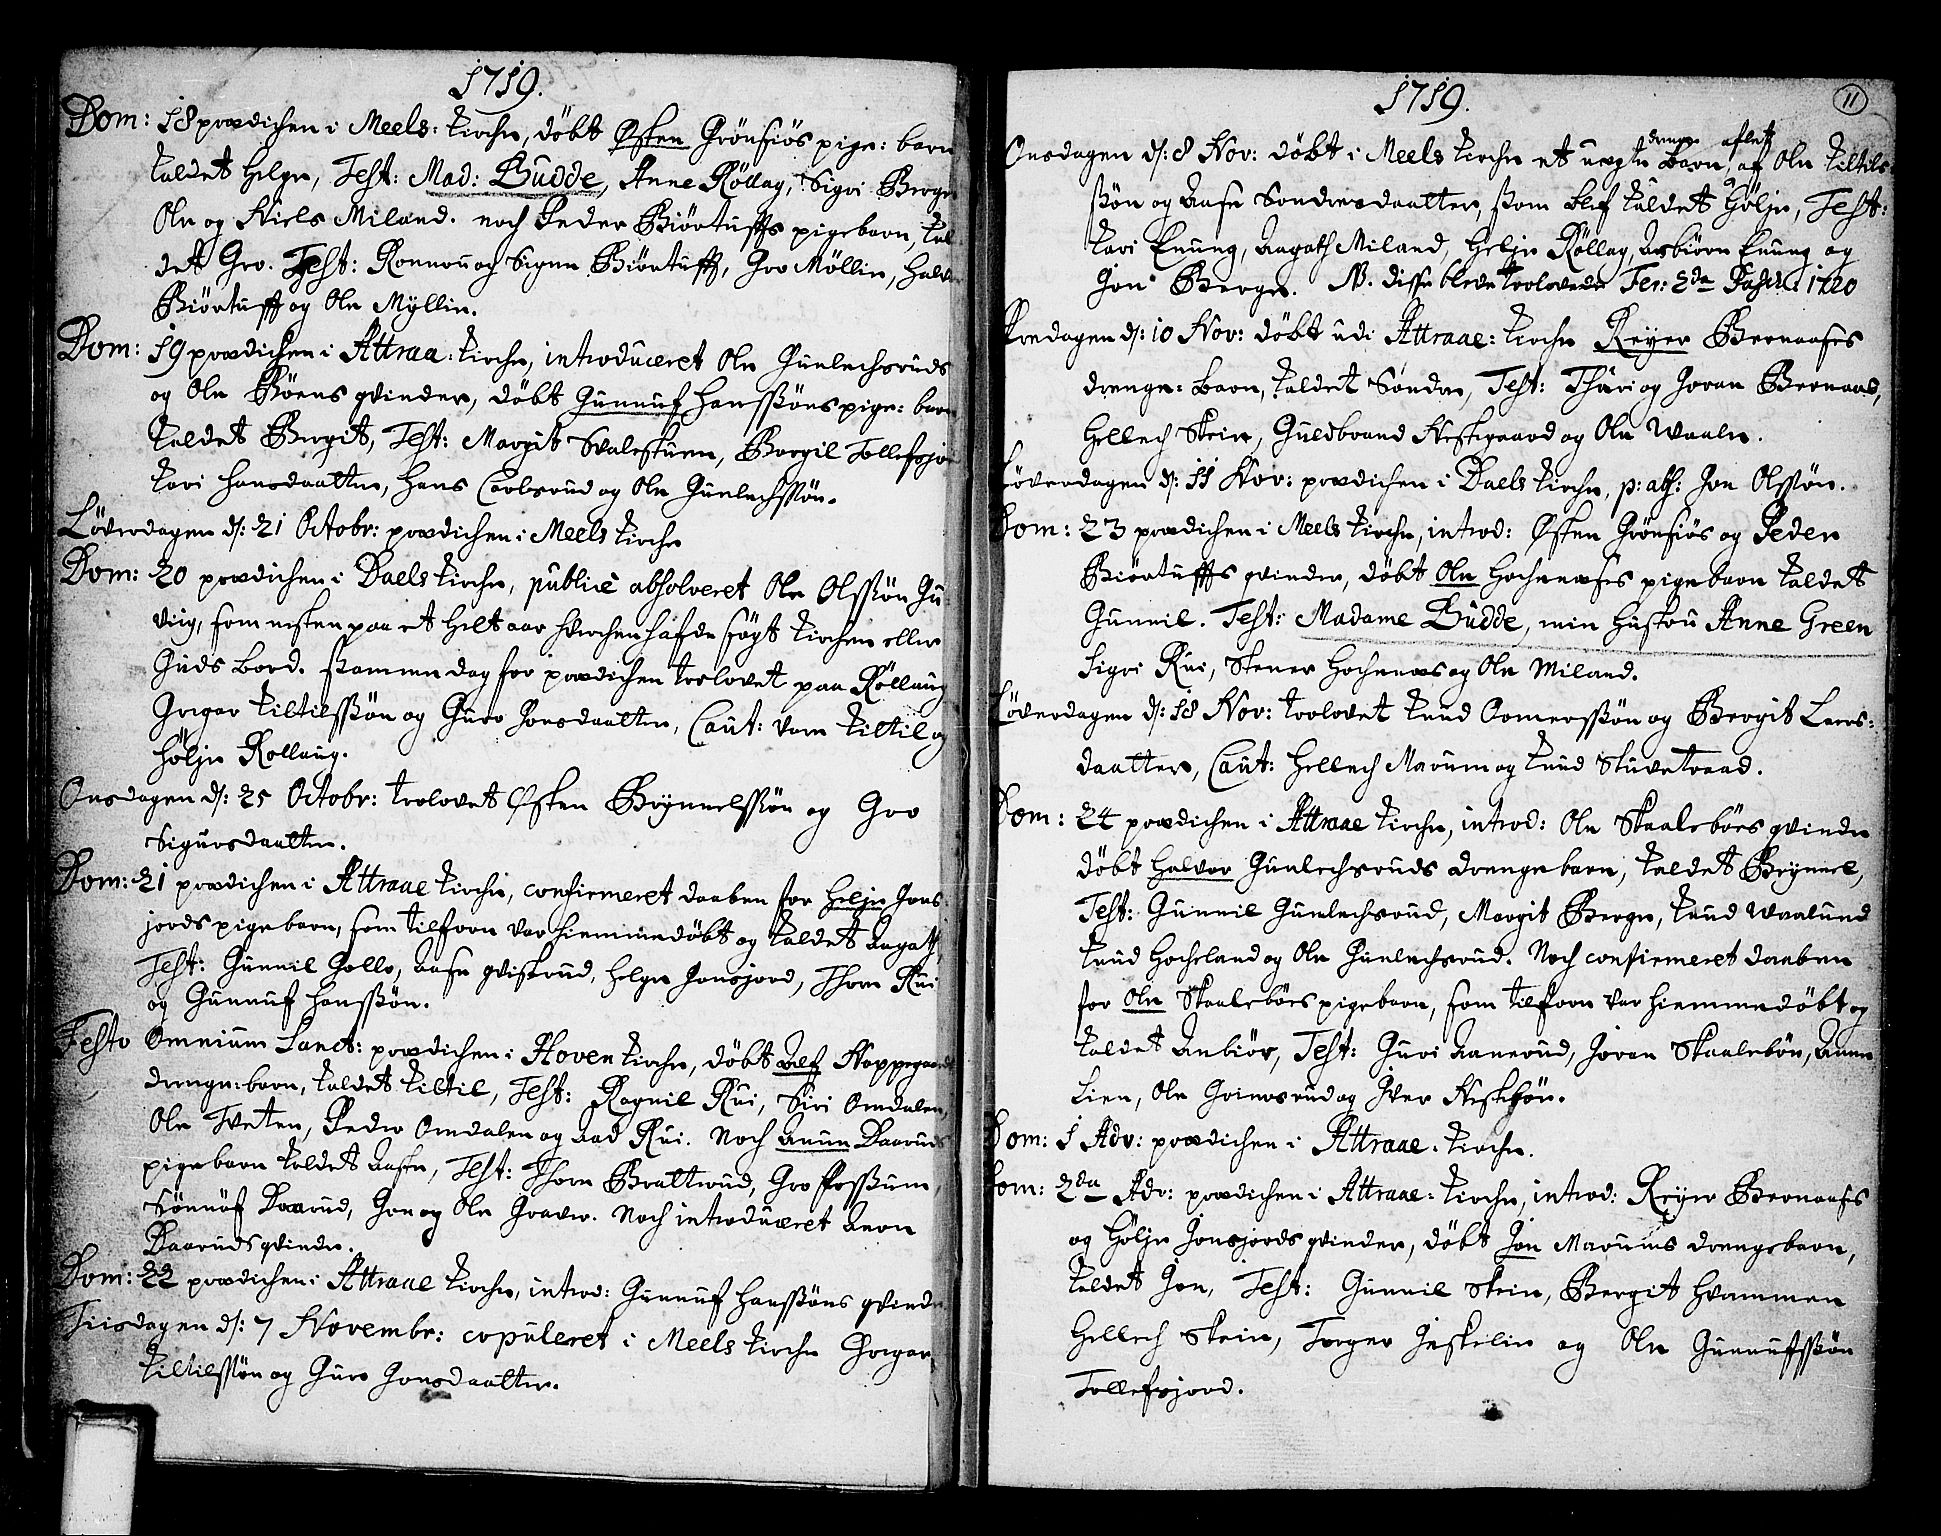 1719.
Dom: 18 prædichen i Meels: Kirche, döbt Østen Grönsiös pige: barn
kaldet Helge, Test: Mad: Budde, Anne Röllag, Sigri Berge
Ole og Niels Miland. noch Peder Biörtuffs pigebarn, kal
det Gro. Test: Ronnou og Signe Biörtuff, Gro Möllin, Halvor
Biörtuff og Ole Myllin.
Dom: 19 prædichen i Attraa: Kirche, introduceret Ole Gunlechsruds
og Ole Böens qvinder, döbt Gunnuf Hanssöns pige: barn
kaldet Bergit, Test: Margit Svalestuen, Bergil Tollefsjor
Kari Hansdaatter, Hans Carlsrud og Ole Gunlechssön.
Löverdagen d: 21 Octobr: prædichen i Meels Kirche
Dom: 20 prædichen i Daels Kirche, publicè absolveret Ole Olssön Gu
viig, som nesten paa et heelt aar hverchen hafde sögt Kirchen eller
Guds bord. Sammen dag for prædichen trolovet paa Röllaug
Gregar Kiltilssön og Guro Jonsdaatter, Caut: vare Kiltil og
Höljе Rollaug.
Onsdagen d: 25 Octobr: trolovet Østen Brynnelssön og Gro
Sigursdaatter.
Dom: 21 prædichen i Attraae Kirche, confirmeret daaben for Helje Jons
jords pigebarn, som tilforn var hiemmedöbt og kaldet Aagath,
Test: Gunnil Gollo, Aase qvistrud, Helge Jonsjord, Thore Rui
og Gunnuf Hanssön.
Festo Omnium Sanct: prædichen i Hoven Kirche, döbt Alf Noppegaards
drenge: barn, kaldet Kiltil, Test: Ragnil Rui, Siri Omdalen,
Ole Tveten, Peder Omdalen og Aad Rui. Noch Aaun Daaruds
pigebarn kaldet Aase, Test: Thore Brattrud, Gro Fossum,
Sönnöf Daarud, Jon og Ole Graver. Noch introduceret Aaon
Daaruds qvinde.
Dom: 22 prædichen i Attraae Kirche, introd: Gunnuf Hanssöns qvinde
Tiisdagen d: 7 Novembr: copuleret i Meels Kirche Gregar
Kiltilssön og Guro Jonsdaatter.
1719.
11
Onsdagen d: 8 Nov: döbt i Meels Kirche et uægte drenge barn, aflet af Ole Kiltils
sön og Aase Sondresdaatter, som blef kaldet Göljе, Test:
Kari Enung, Aagath Miland, Helje Röllag, Asbiörn Enung og
Jon Berge. NB. disse bleve trolovede Fer: 2da Pasch: 1720
Fredagen d: 10 Nov: döbt udi Attraae: Kirche Reyer Bernaases
drenge: barn, kaldet Söndre, Test: Thuri og Joran Bernaas,
Hellech Skeie, Guldbrand Nestegaard og Ole Waale.
Löverdagen d: 11 Nov: prædichen i Daels Kirche, p: abs: Jon Olssön.
Dom: 23 prædichen i Meels Kirche, introd: Østen Grönsiös og Peder
Biörtuffs qvinder, döbt Ole Hochenæses pigebarn kaldet
Gunnil. Test: Madame Budde, min Hustru Anne Green
Sigri Rui, Stener Hochenæs og Ole Miland.
Löverdagen d: 18 Nov: trolovet Knud Ormerssön og Bergit Lars:
daatter, Caut: Hellech Marum og Knud Stuvetraad.
Dom: 24 prædichen i Attraae Kirche, introd: Ole Skaaleböes qvinde
döbt Halvor Gunlechsruds drengebarn, kaldet Brynnel,
Test: Gunnil Gunlechsrud, Margit Berge, Knud Waalund
Knud Hocheland og Ole Gunlechsrud. Noch confirmeret daaben
for Ole Skaaleböes pigebarn, som tilforn var hiemmedöbt og
kaldet Anbiör, Test: Guri Aanerud, Joran Skaaleböe, Anne
Lien, Ole Grimsrud og Iver Nestebön.
Dom: 1 Adv: prædichen i Attraae: Kirche.
Dom: 2da Adv: prædichen i Attraae: Kirche, introd: Reyer Bernaases
og Höljе Jonsjords qvinder, döbt Jon Marums drengebarn,
kaldet Jon, Test: Gunnil Skeie, Bergit Hvammen
Hellech Skeie, Torger Jeskelie og Ole Gunnufssön
Tollefsjord.